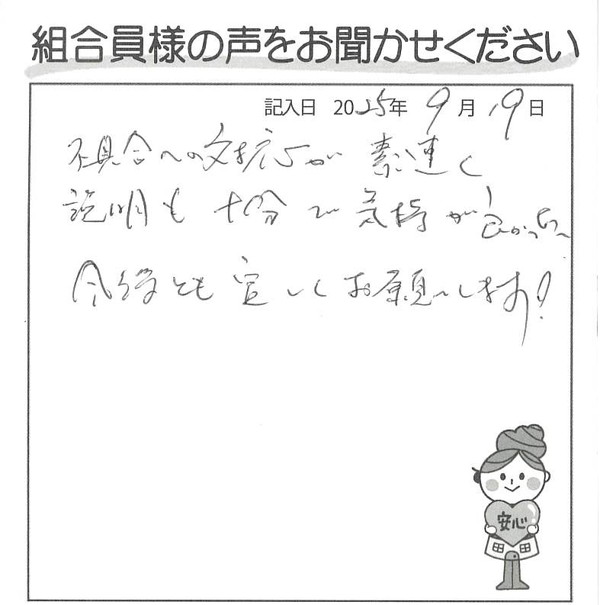 組合員様の声をお聞かせください
記入日 2025年 9月 19日
不具合への対応が 素速く
説明も 十分で 気持が良かった
今後とも 宜しくお願いします!
安心